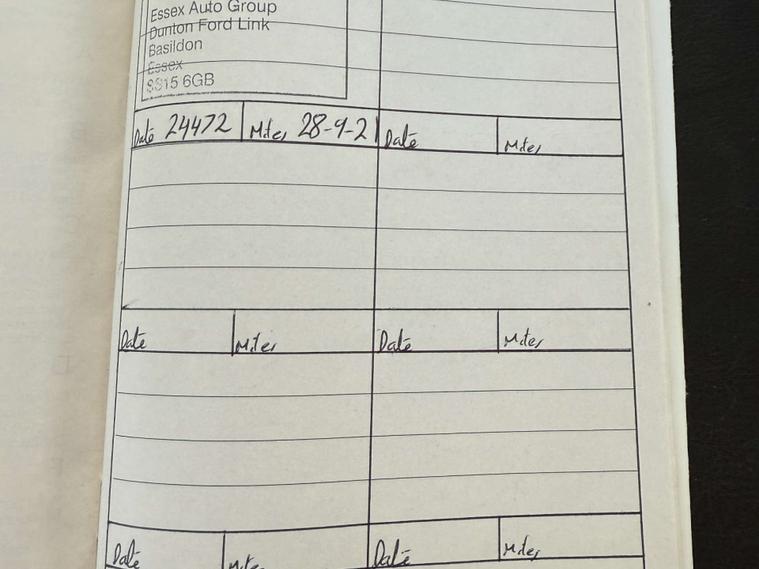 Essex Auto Group
Dunton Ford Link
Basildon
Essex
SS15 6GB
Date 24472 Miles 28-9-21 Date Miles
Date Miles Date Miles
Date Miles Date Miles